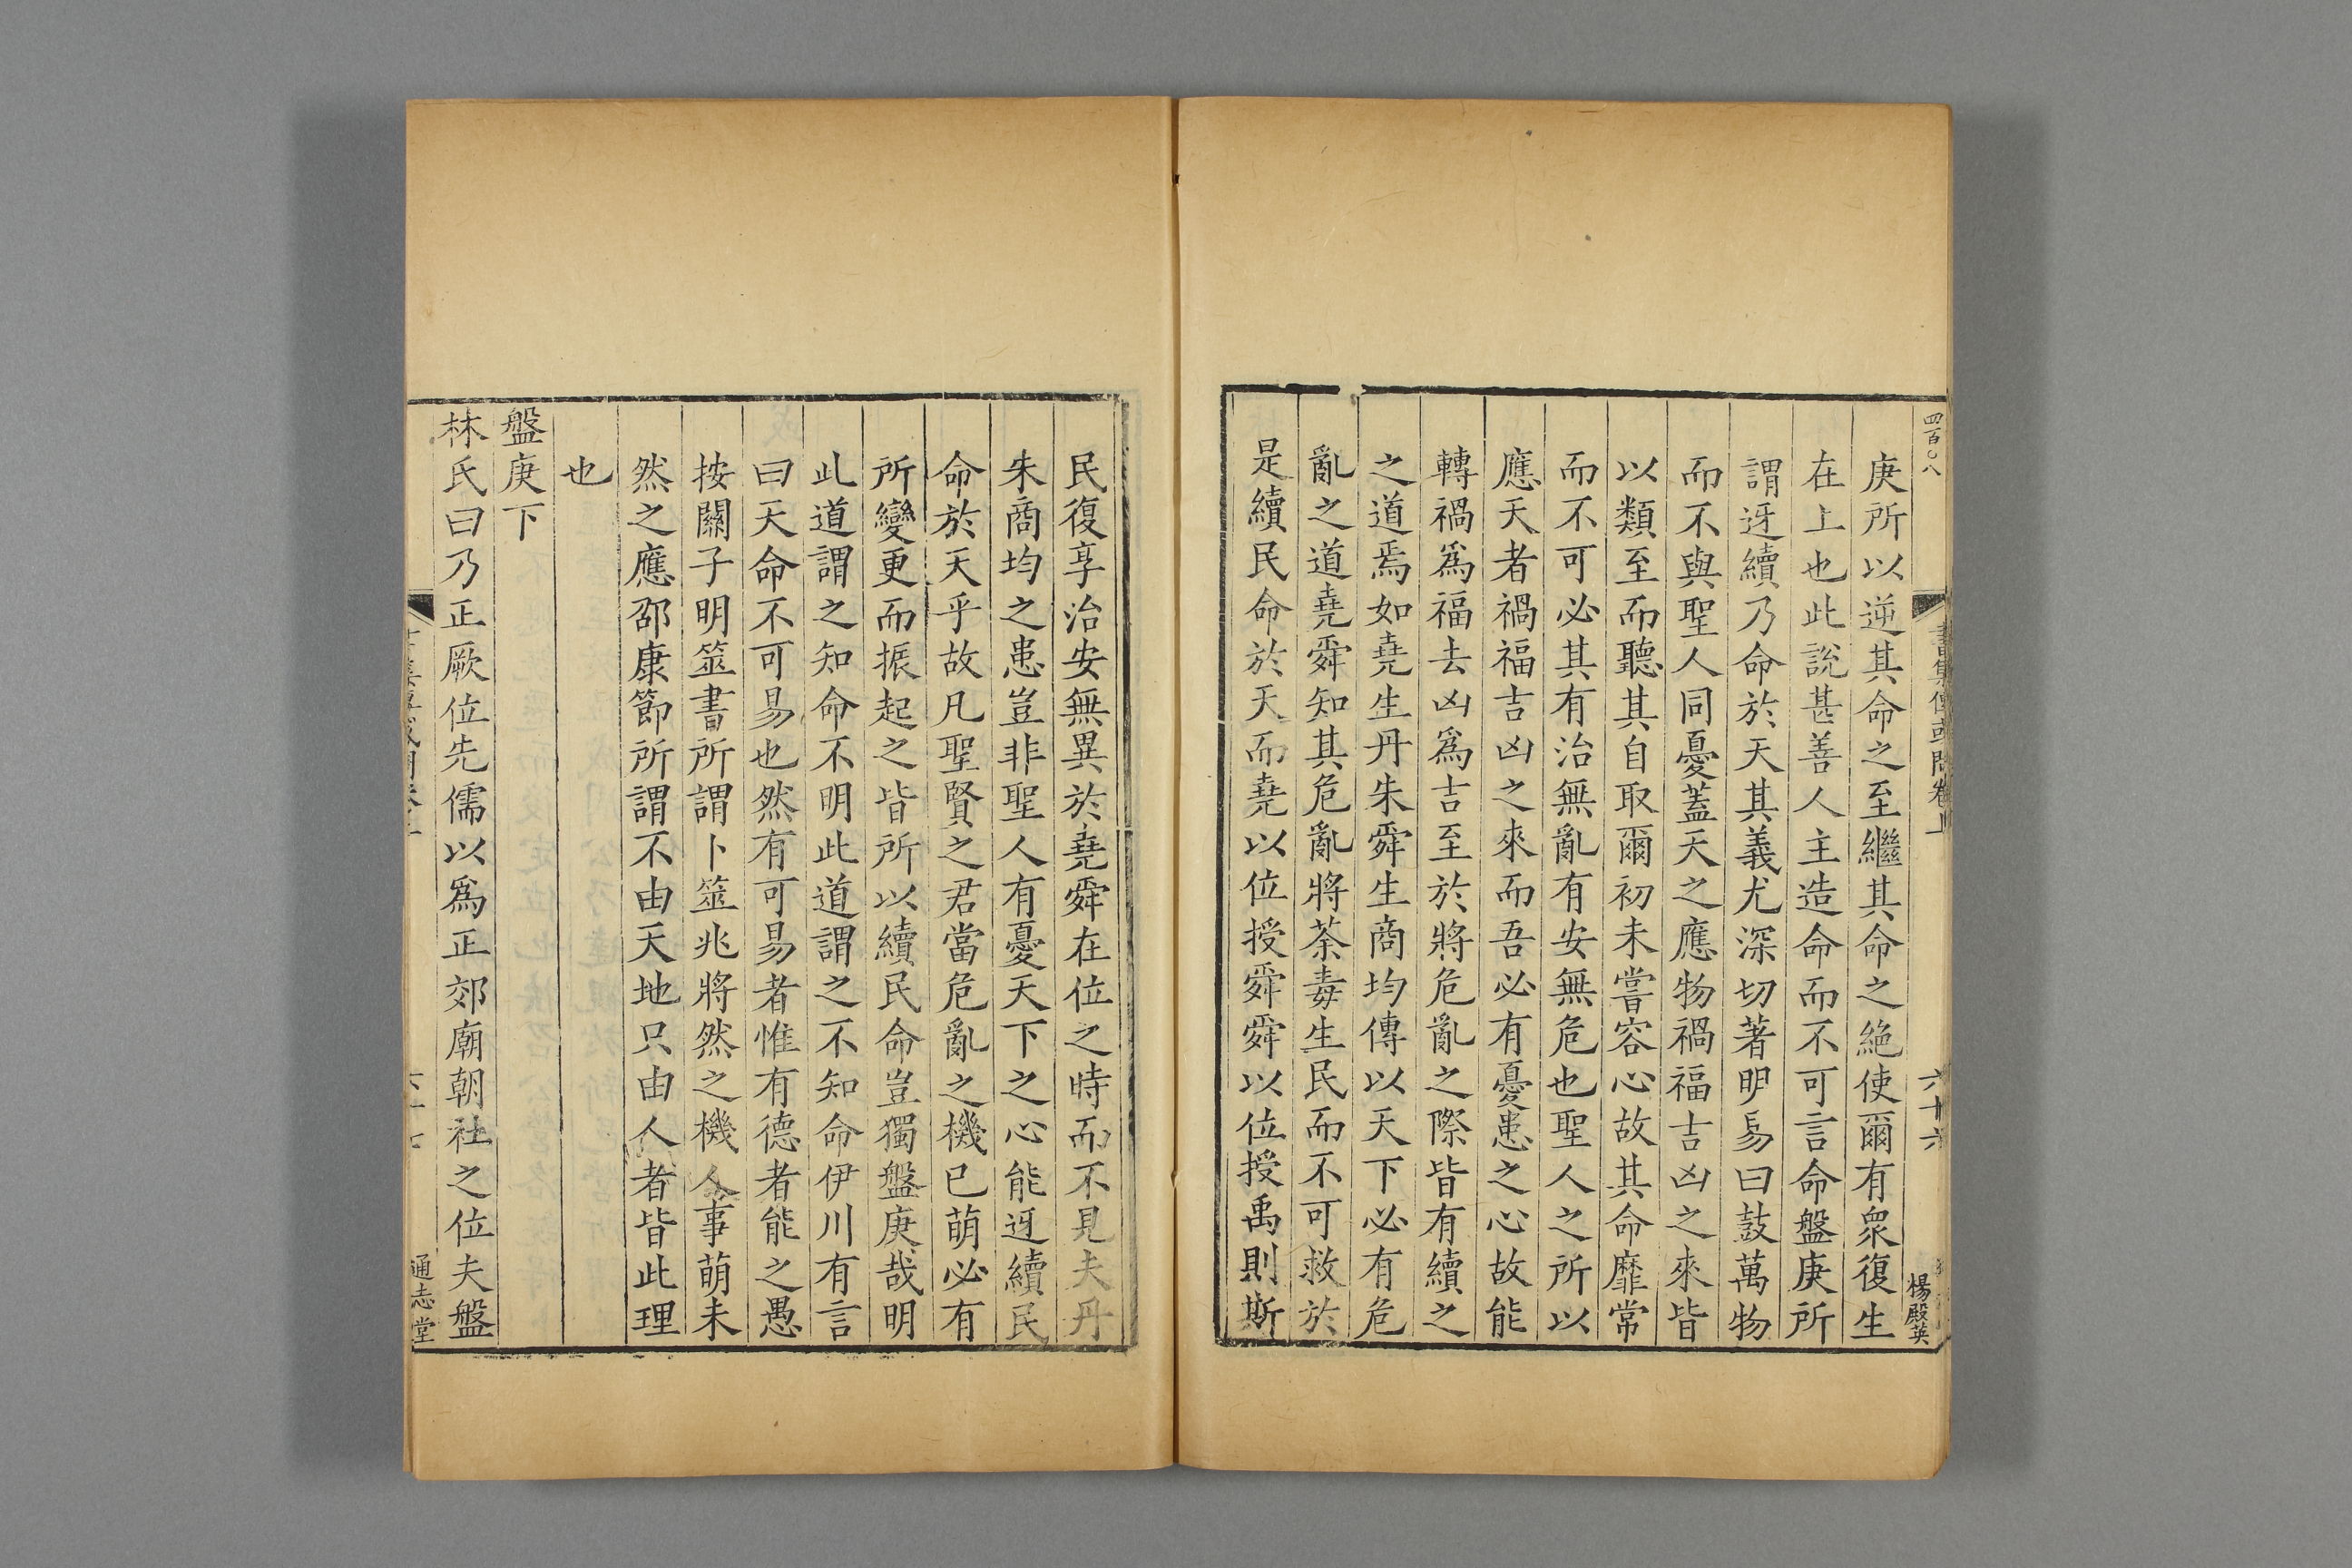 四百〇八
書集傳或問卷上
六十六
楊殿英
庚所以逆其命之至繼其命之絶使爾有衆復生
在上也此說甚善人主造命而不可言命盤庚所
謂迓續乃命於天其義尤深切著明易曰鼓萬物
而不與聖人同憂蓋天之應物禍福吉凶之來皆
以類至而聽其自取爾初未嘗容心故其命靡常
而不可必其有治無亂有安無危也聖人之所以
應天者禍福吉凶之來而吾必有憂患之心故能
轉禍爲福去凶爲吉至於將危亂之際皆有續之
之道焉如堯生丹朱舜生商均傳以天下必有危
亂之道堯舜知其危亂將荼毒生民而不可救於
是續民命於天而堯以位授舜舜以位授禹則斯
民復享治安無異於堯舜在位之時而不見夫丹
朱商均之患豈非聖人有憂天下之心能迓續民
命於天乎故凡聖賢之君當危亂之機已萌必有
所變更而振起之皆所以續民命豈獨盤庚哉明
此道謂之知命不明此道謂之不知命伊川有言
曰天命不可易也然有可易者惟有德者能之愚
按關子明筮書所謂卜筮兆將然之機人事萌未
然之應邵康節所謂不由天地只由人者皆此理
也
盤庚下
林氏曰乃正厥位先儒以爲正郊廟朝社之位夫盤
通志堂